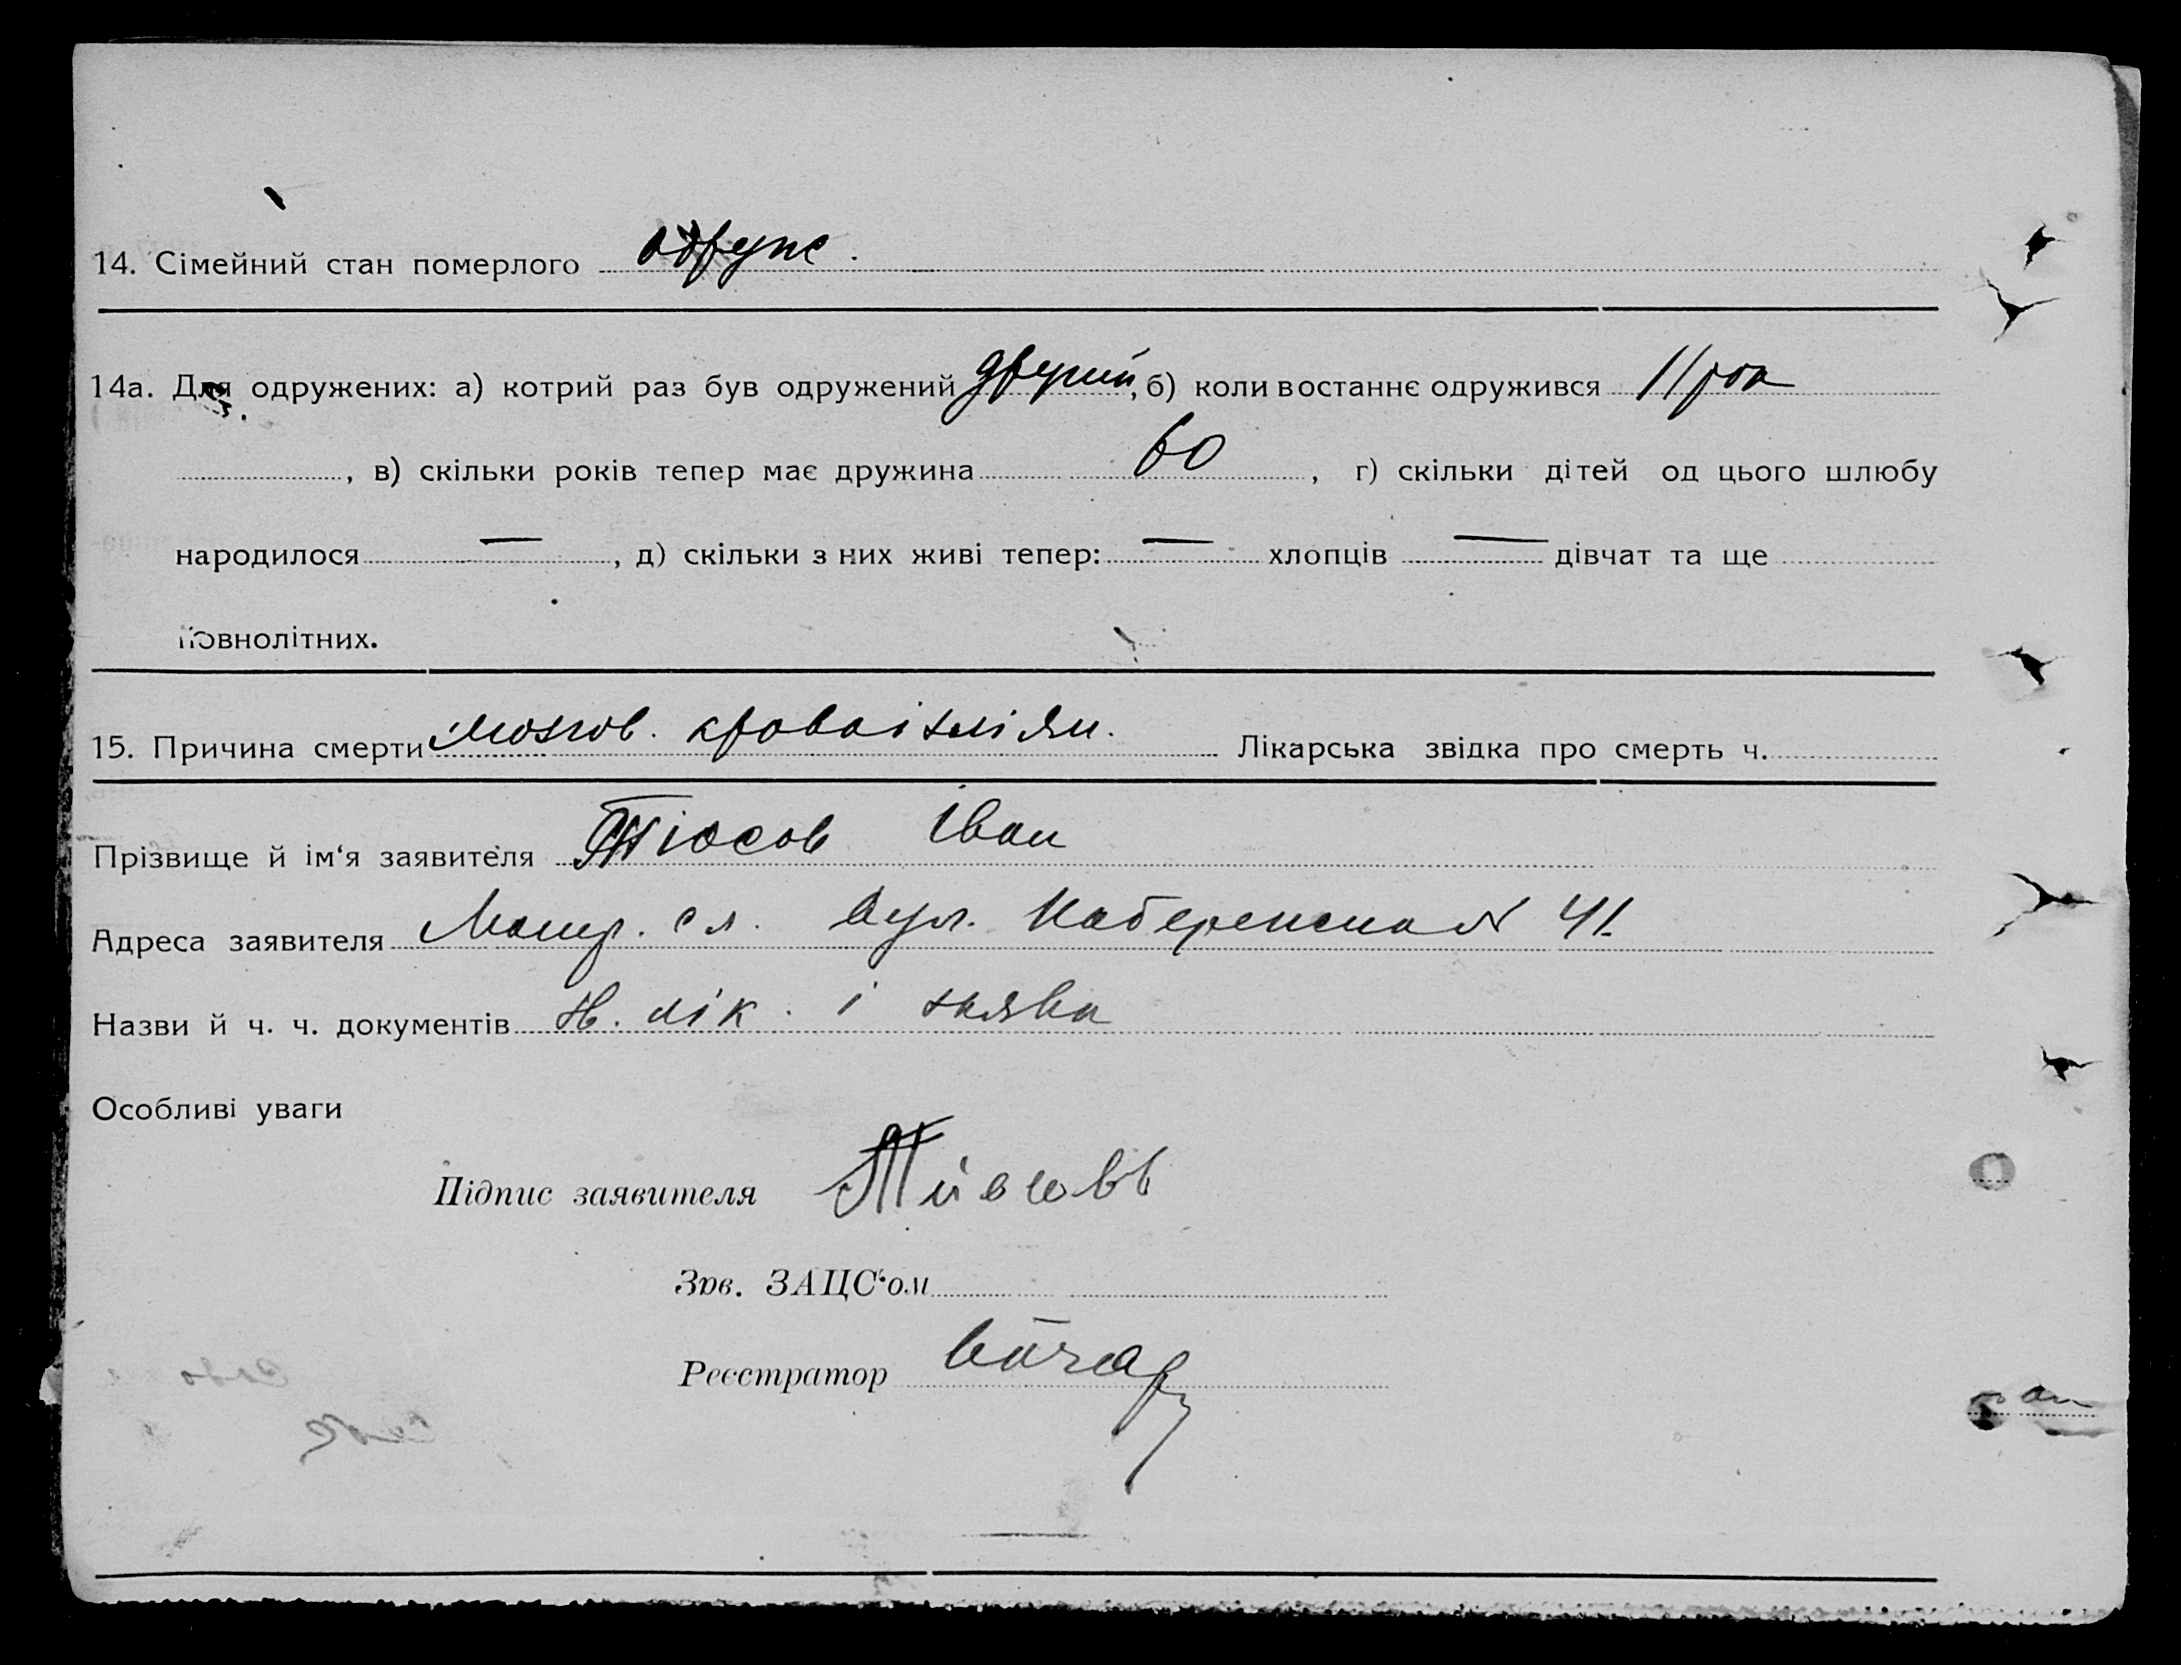 14. Сімейний стан померлого одруж.
14а. Для одружених: а) котрий раз був одружений другий, б) коли востаннє одружився 11 рок
, в) скільки років тепер має дружина 60, г) скільки дітей од цього шлюбу
народилося —, д) скільки з них живі тепер: — хлопців — дівчат та ще
повнолітних.
15. Причина смерти мозгов. кровоізліян. Лікарська звідка про смерть ч.
Прізвище й ім‘я заявителя Тюсов Іван
Адреса заявителя сл. вул. Набережна N 41
Назви й ч. ч. документів лік. і заява
Особливі уваги
Підпис заявителя
Зав. ЗАЦС‘ом
Реєстратор